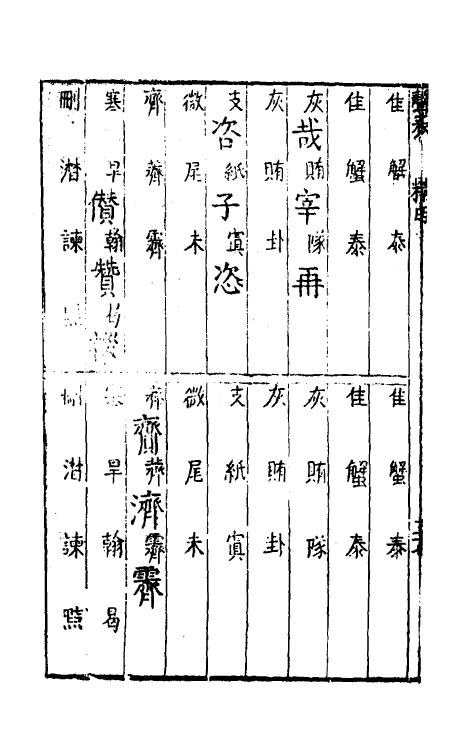 佳解泰
佳蟹泰
灰賄隊
哉宰再
灰賄卦
支紙寘
咨子恣
微尾未
齊薺霽
寒旱翰曷
儹贊
刪潸諫
佳蟹泰
佳蟹泰
灰賄隊
灰賄卦
支紙寘
微尾未
齊薺霽
齊濟霽
旱翰曷
潸諫黠